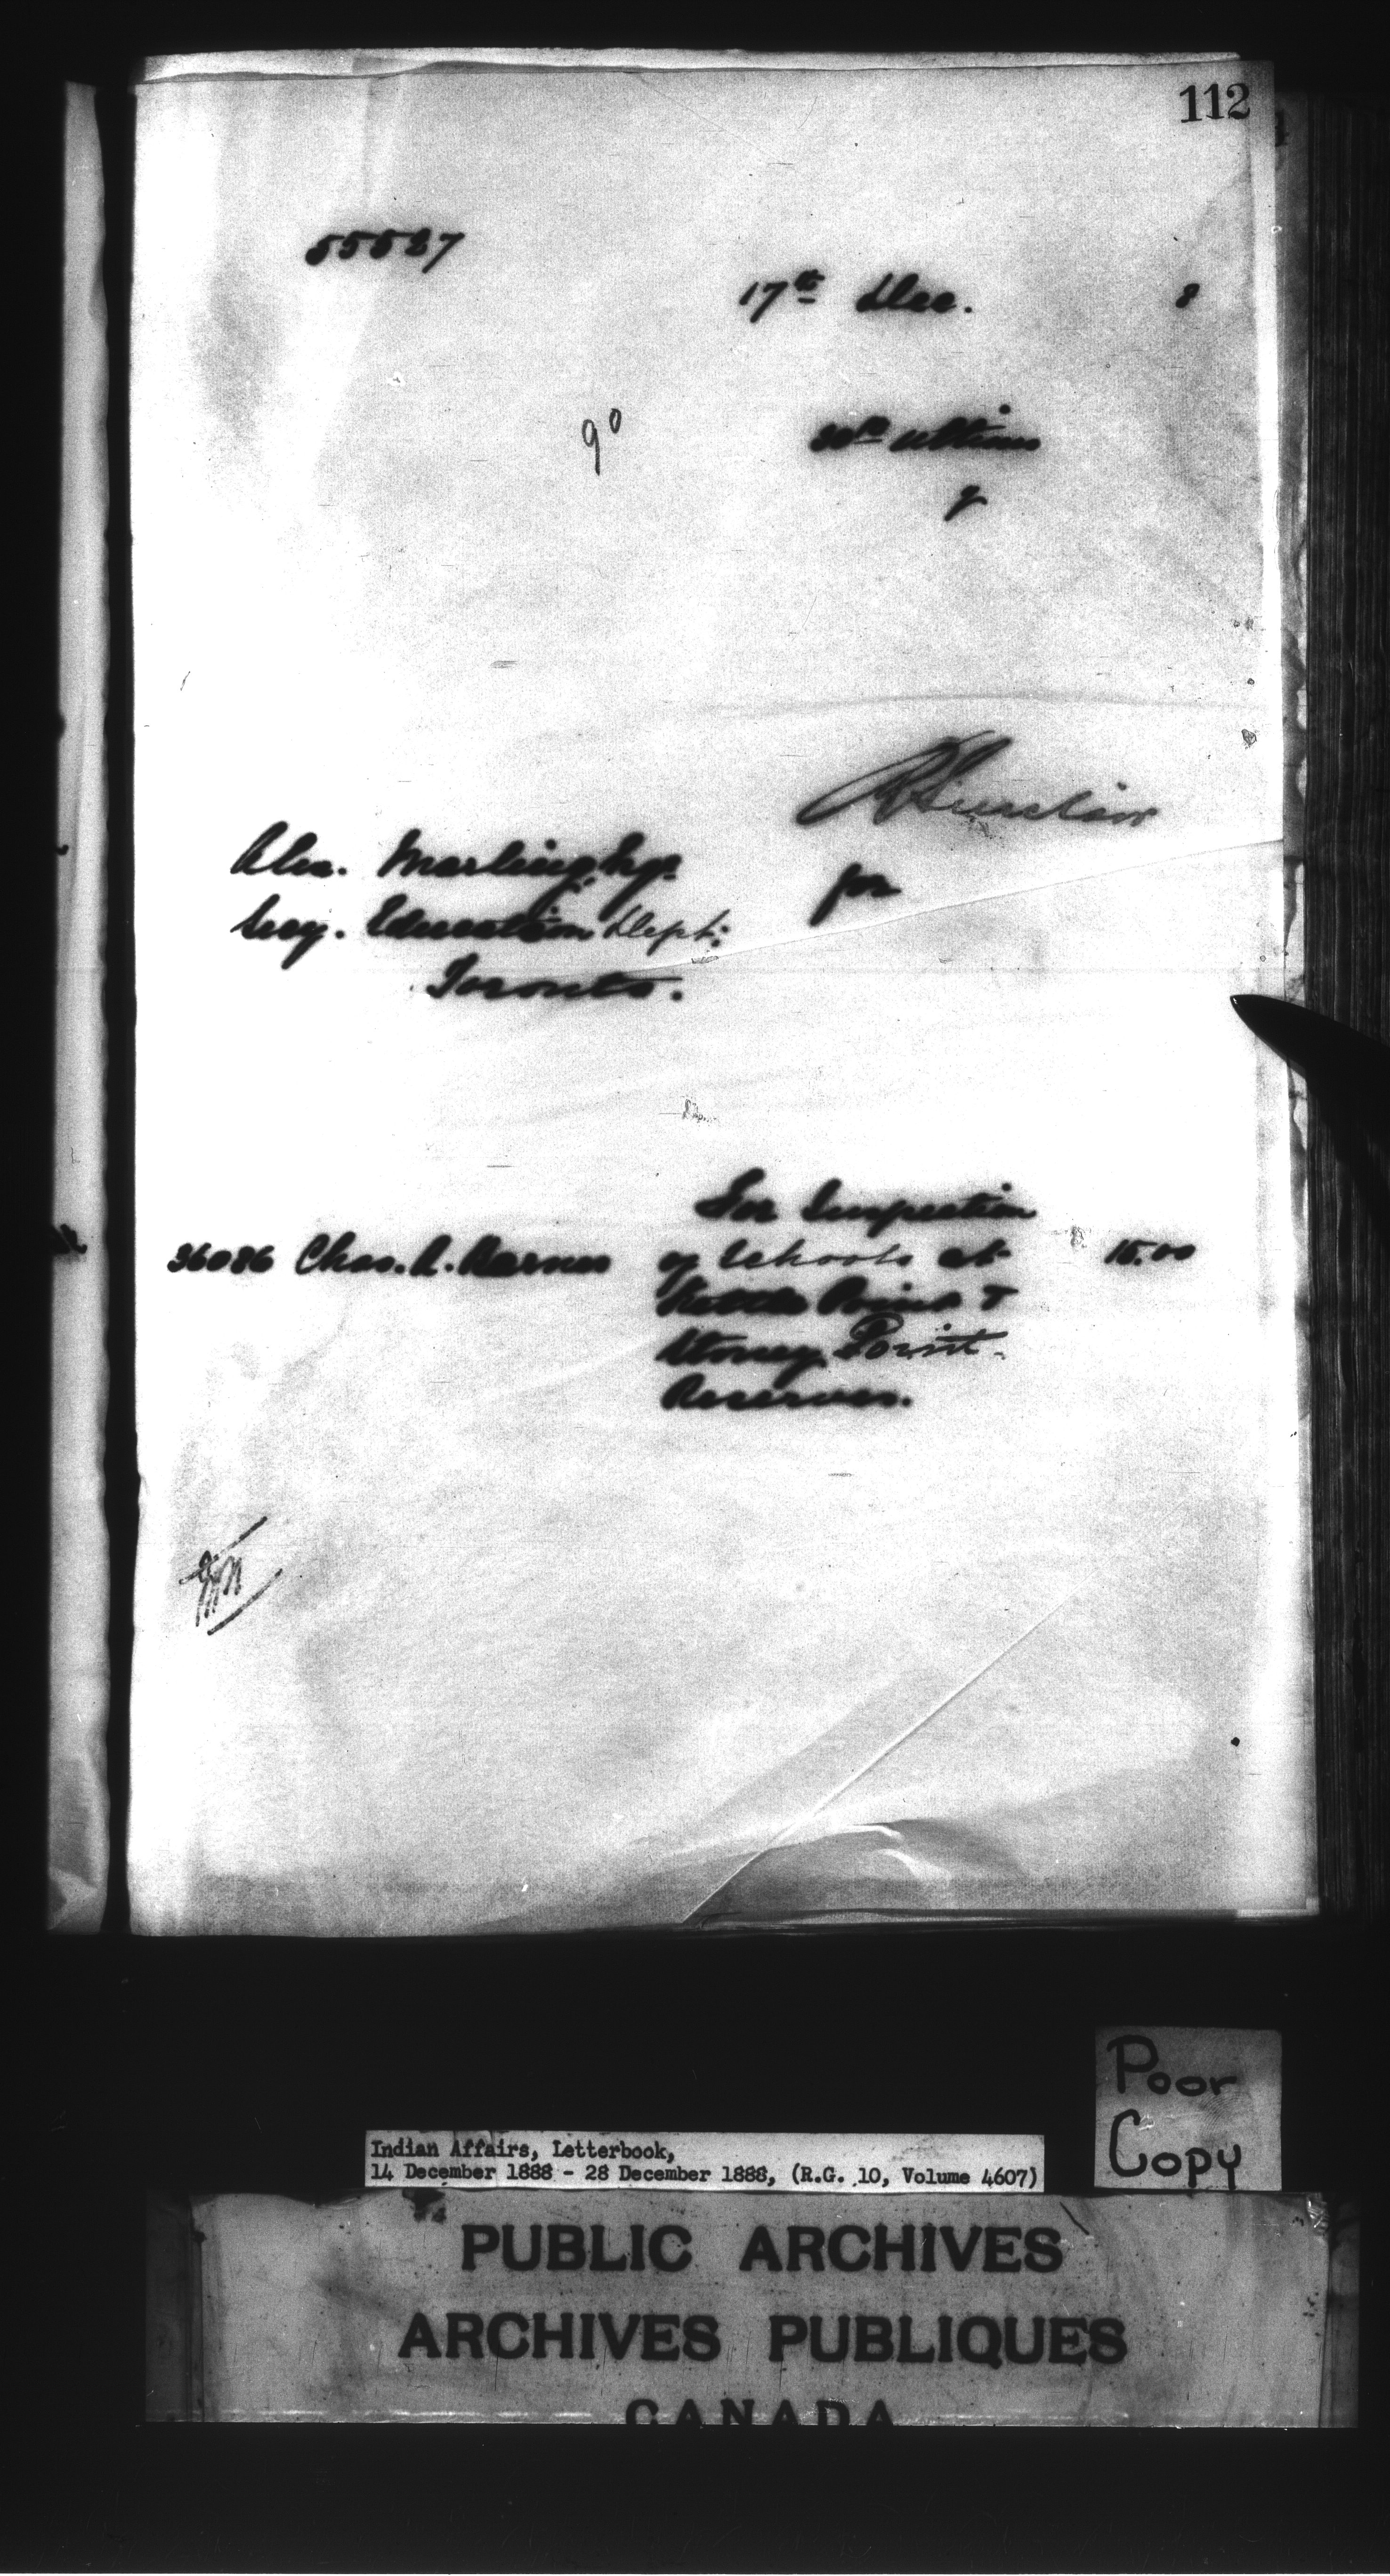 112
55527
17th Dec. 8
90
30th ultimo
y
RSinclair
Alex. Marling, Esq.
for
Secy. Education Dept.
Toronto.
For Inspection
36086 Chas. A. Barnes of Schools at 15.00
Kettle Point &
Stoney Point
Reserves.
Poor
Copy
Indian Affairs, Letterbook,
14 December 1888 - 28 December 1888, (R.G. 10, Volume 4607)
PUBLIC ARCHIVES
ARCHIVES PUBLIQUES
CANADA